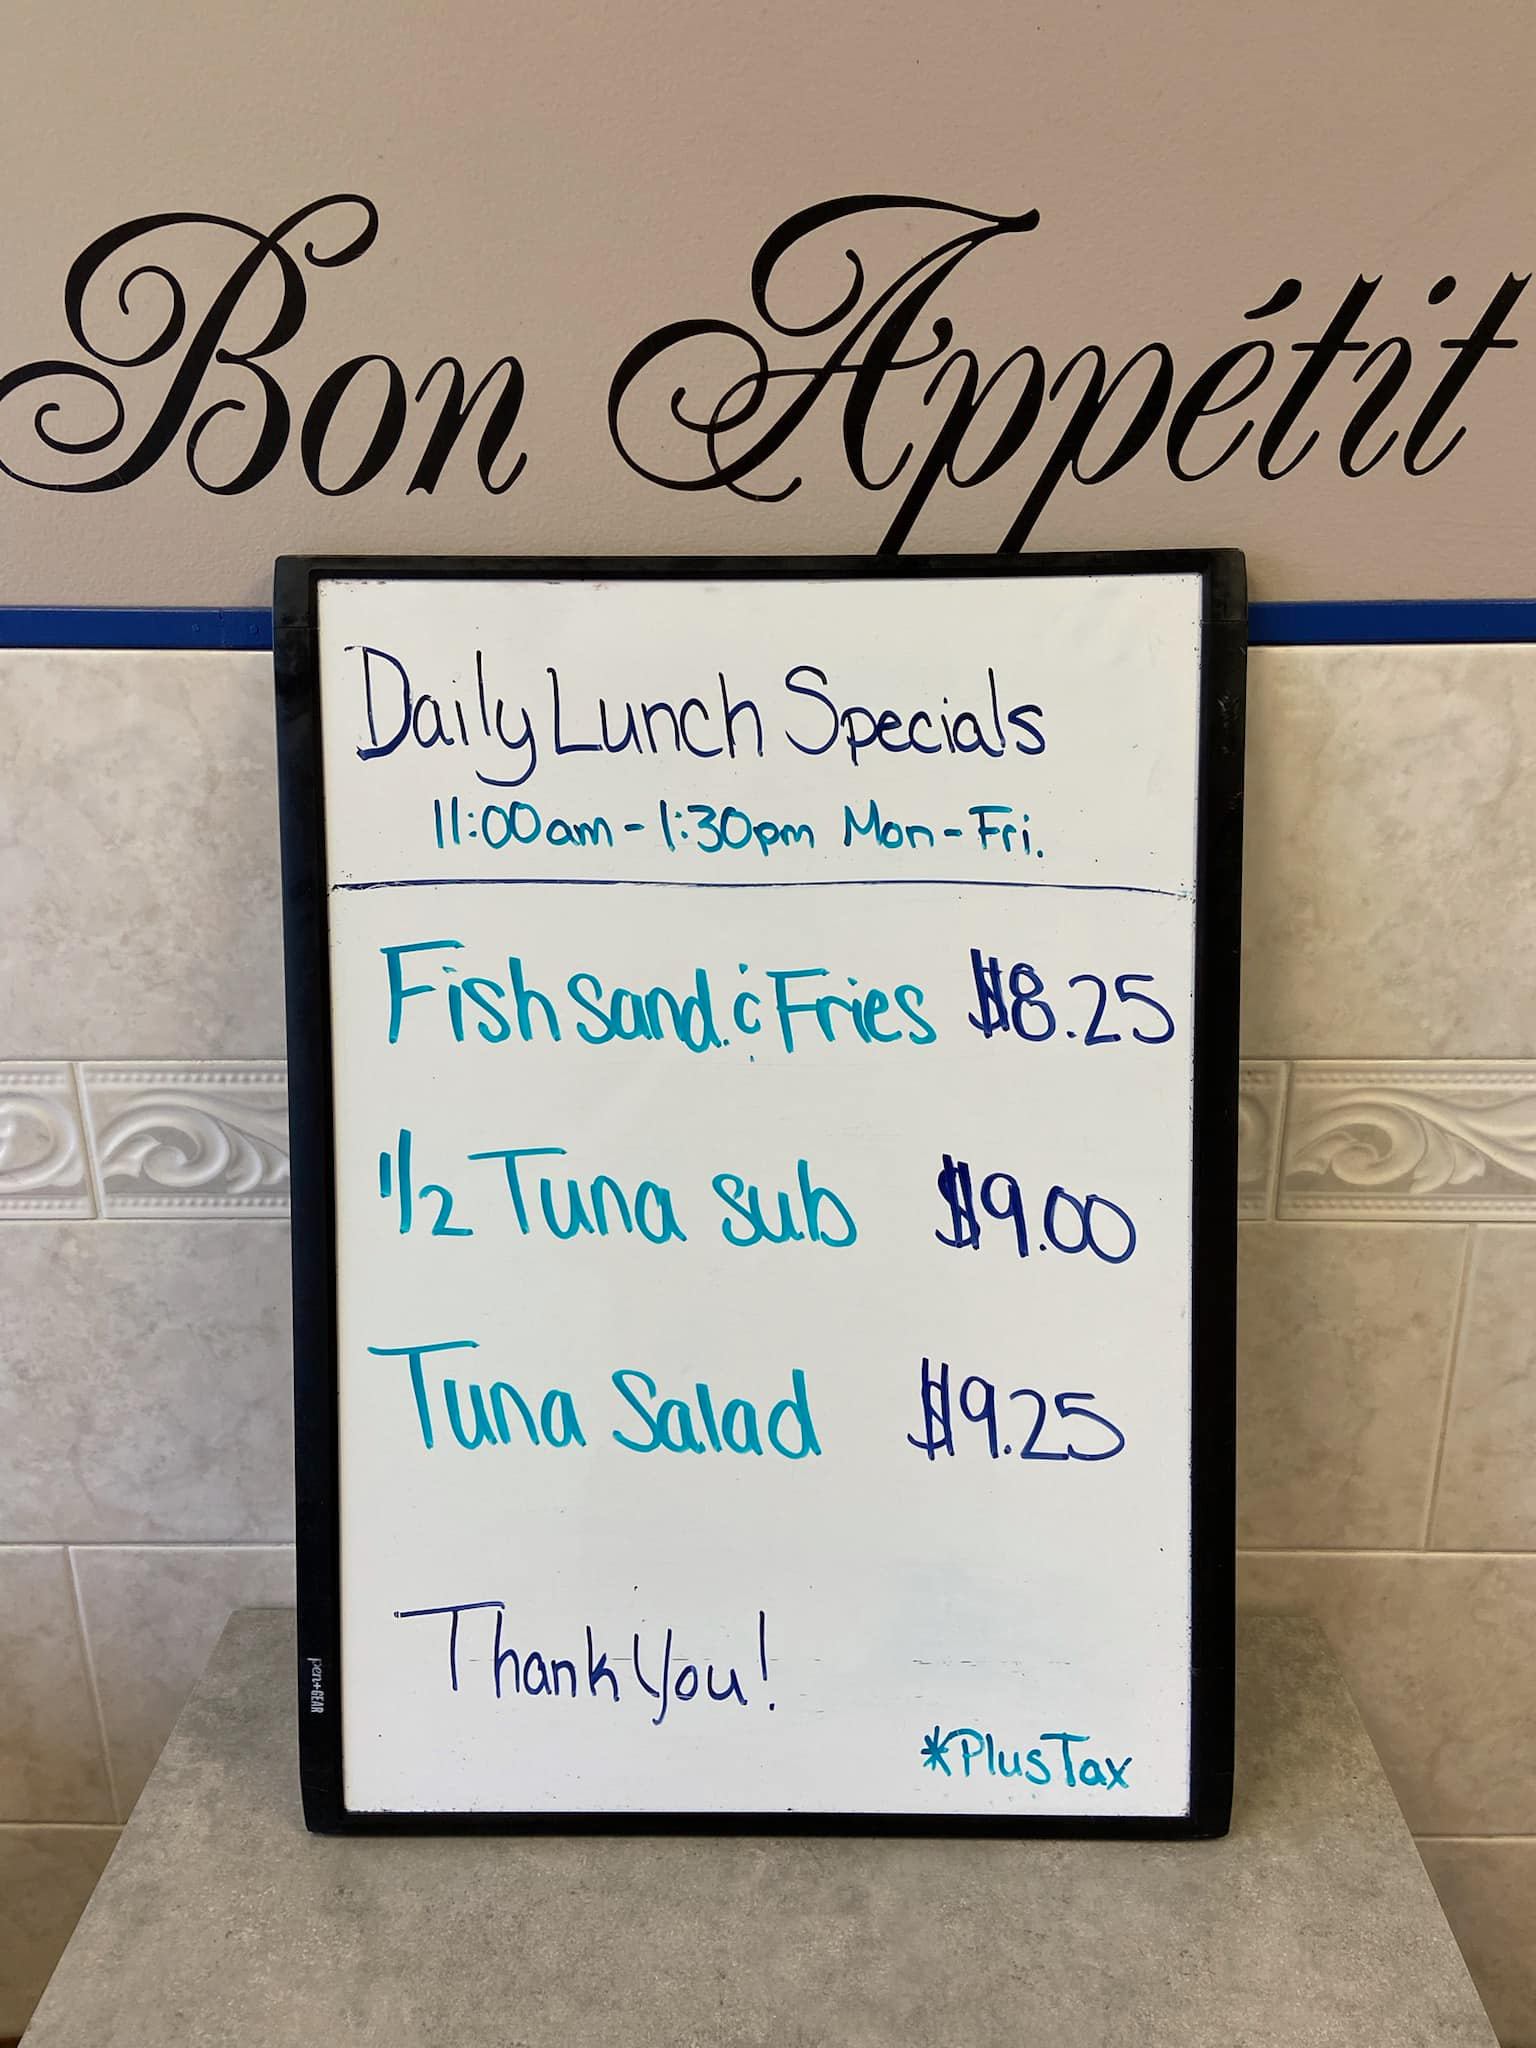 Bon Appétit
Daily Lunch Specials
11:00am - 1:30pm Mon - Fri.
Fish sand. & Fries $8.25
1/2 Tuna sub $9.00
Tuna Salad $9.25
Thank You!
*Plus Tax
pen+GEAR